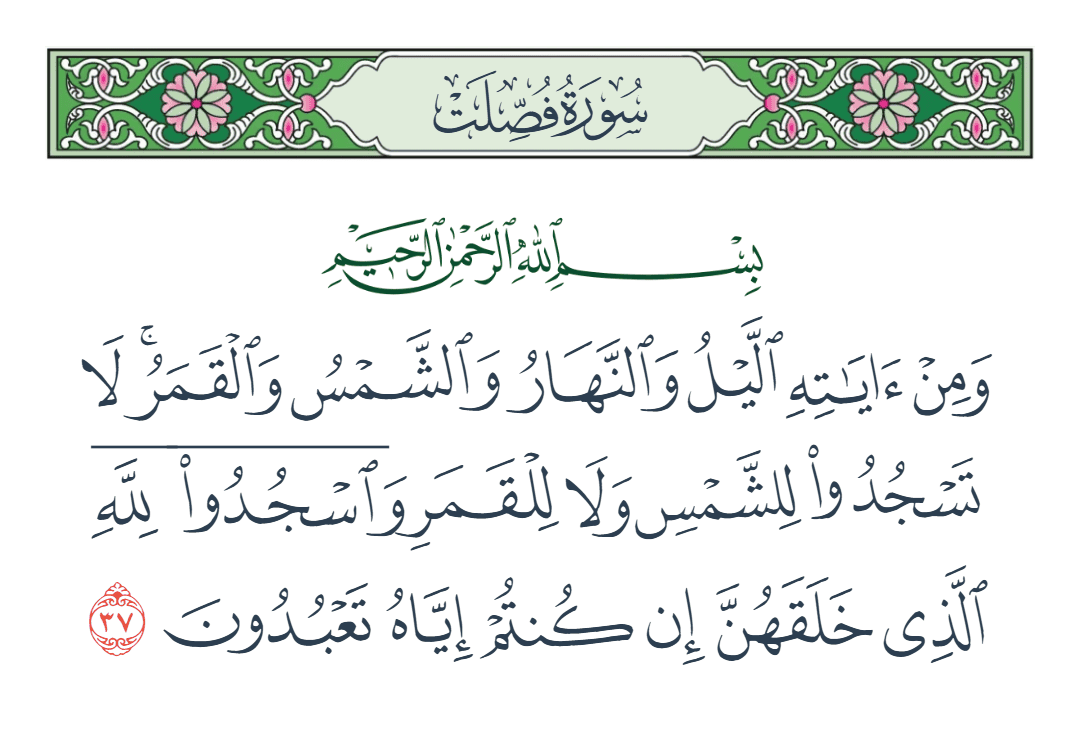 سُورَةُ فُصِّلَتْ
بِسْمِ ٱللَّهِ ٱلرَّحْمَٰنِ ٱلرَّحِيمِ
وَمِنْ ءَايَٰتِهِ ٱلَّيْلُ وَٱلنَّهَارُ وَٱلشَّمْسُ وَٱلْقَمَرُ ۚ لَا
تَسْجُدُوا۟ لِلشَّمْسِ وَلَا لِلْقَمَرِ وَٱسْجُدُوا۟ لِلَّهِ
ٱلَّذِى خَلَقَهُنَّ إِن كُنتُمْ إِيَّاهُ تَعْبُدُونَ ٣٧